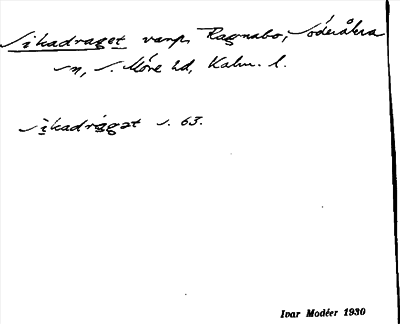 Sikadraget varp, Ragnabo, Söderåkra
sn, S. Möre hd, Kalm. l.
sikadráget s. 63.
Ivar Modéer 1930